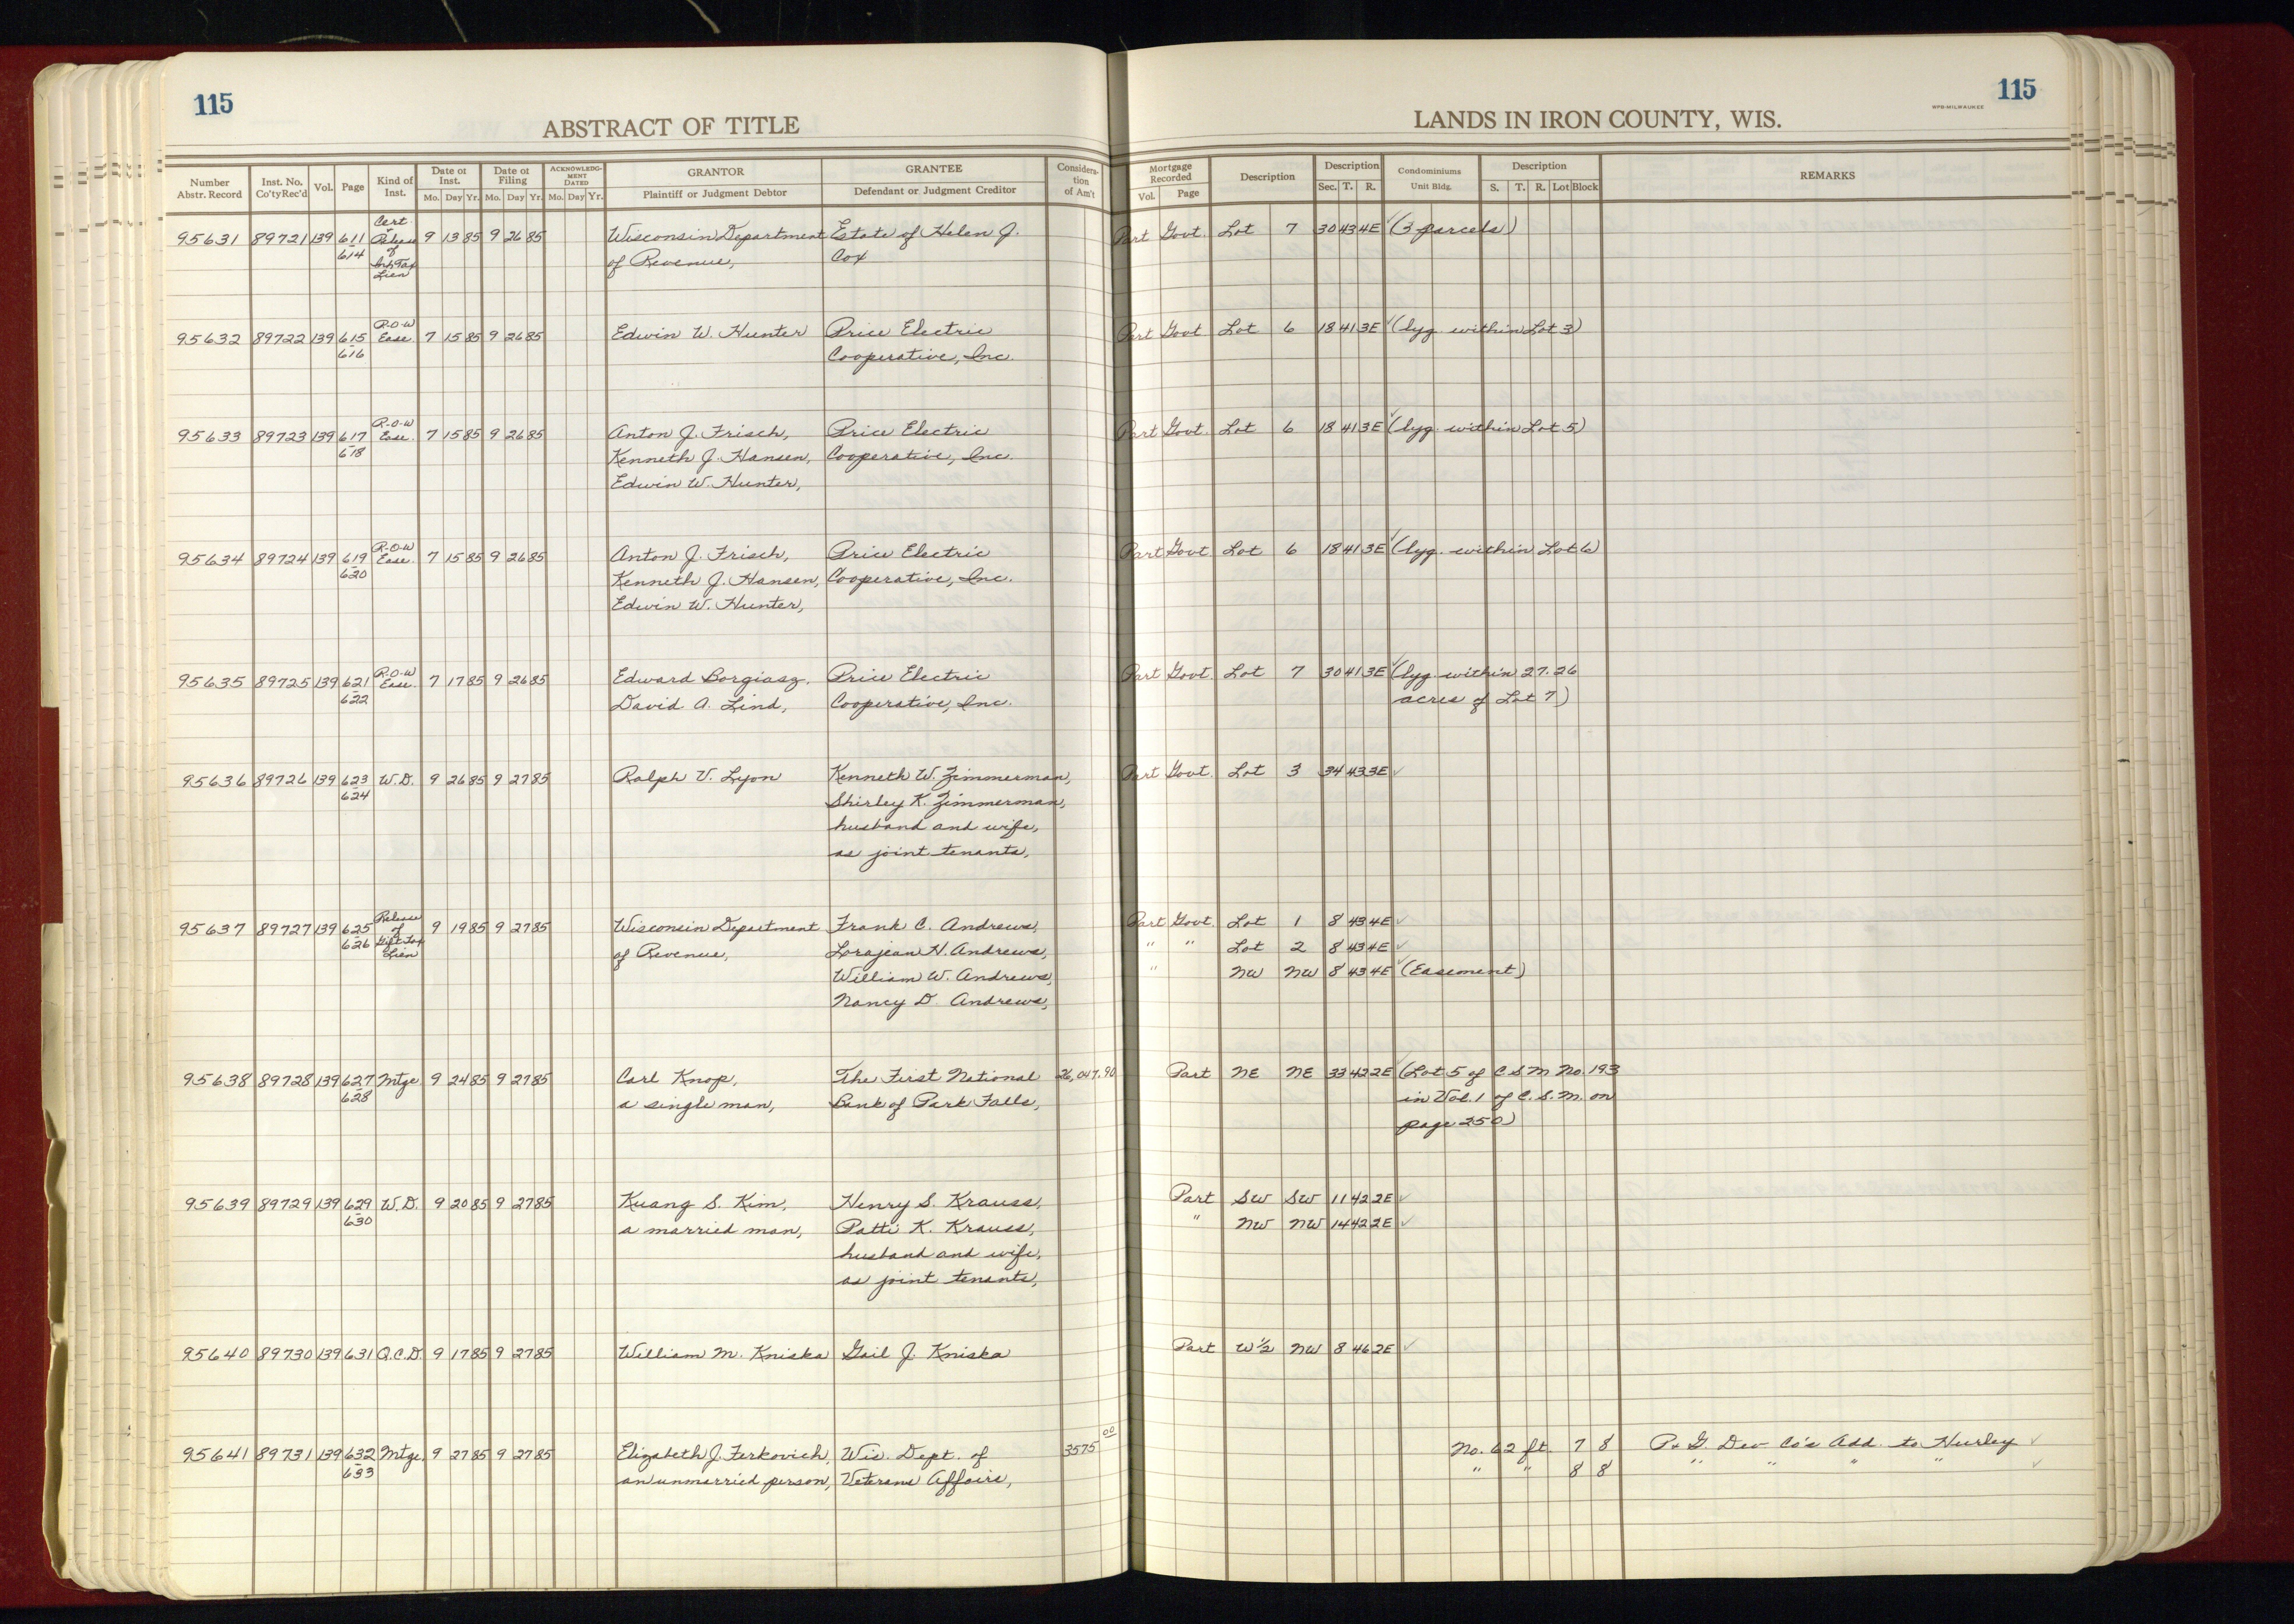 115
ABSTRACT OF TITLE
LANDS IN IRON COUNTY, WIS.
WPB-MILWAUKEE
115
Number Abstr. Record
Inst. No. Co'ty Rec'd
Vol.
Page
Kind of Inst.
Date of Inst. Mo. Day Yr.
Date of Filing Mo. Day Yr.
ACKNOWLEDGMENT DATED Mo. Day Yr.
GRANTOR Plaintiff or Judgment Debtor
GRANTEE Defendant or Judgment Creditor
Consideration of Am't
Mortgage Recorded Vol. Page
Description
Description Sec. T. R.
Condominiums Unit Bldg.
Description S. T. R. Lot Block
REMARKS
95631 89721 139 611 Cert. 9 13 85 9 26 85 Wisconsin Department Estate of Helen J. Part Govt. Lot 7 30 43 4E ✓ (3 parcels)
614 Release of Tax Lien of Revenue, Cox
95632 89722 139 615 R-O-W Ease. 7 15 85 9 26 85 Edwin W. Hunter Price Electric Part Govt Lot 6 18 41 3E ✓ (lyg. within Lot 3)
616 Cooperative, Inc.
95633 89723 139 617 R-O-W Ease. 7 15 85 9 26 85 Anton J. Frisch, Price Electric Part Govt. Lot 6 18 41 3E ✓ (lyg. within Lot 5)
618 Kenneth J. Hansen, Cooperative, Inc.
Edwin W. Hunter,
95634 89724 139 619 R-O-W Ease. 7 15 85 9 26 85 Anton J. Frisch, Price Electric Part Govt. Lot 6 18 41 3E ✓ (lyg. within Lot 6)
620 Kenneth J. Hansen, Cooperative, Inc.
Edwin W. Hunter,
95635 89725 139 621 R-O-W Ease. 7 17 85 9 26 85 Edward Borgiasz, Price Electric Part Govt. Lot 7 30 41 3E ✓ (lyg. within 27.26
622 David A. Lind, Cooperative, Inc. acres of Lot 7)
95636 89726 139 623 W.D. 9 26 85 9 27 85 Ralph V. Lyon Kenneth W. Zimmerman, Part Govt. Lot 3 34 43 3E ✓
624 Shirley K. Zimmerman,
husband and wife,
as joint tenants,
95637 89727 139 625 Release of Gift Tax Lien 9 19 85 9 27 85 Wisconsin Department Frank C. Andrews, Part Govt. Lot 1 8 43 4E ✓
626 of Revenue, Lorajean H. Andrews, " " Lot 2 8 43 4E ✓
William W. Andrews, " NW NW 8 43 4E ✓ (Easement)
Nancy D. Andrews,
95638 89728 139 627 Mtge 9 24 85 9 27 85 Carl Knop, The First National 26,047.90 Part NE NE 33 42 2E ✓ (Lot 5 of C S M No. 193
628 a single man, Bank of Park Falls, in Vol. 1 of C.S.M. on
page 250)
95639 89729 139 629 W.D. 9 20 85 9 27 85 Kuang S. Kim, Henry S. Krauss, Part SW SW 11 42 2E ✓
630 a married man, Patti K. Krauss, " NW NW 14 42 2E ✓
husband and wife,
as joint tenants,
95640 89730 139 631 Q.C.D. 9 17 85 9 27 85 William M. Kniska Gail J. Kniska Part W½ NW 8 46 2E ✓
95641 89731 139 632 Mtge. 9 27 85 9 27 85 Elizabeth J. Ferkovich, Wis. Dept. of 3575 00 No. 62 ft. 7 8 P. & G. Dev Co's Add. to Hurley ✓
633 an unmarried person, Veterans Affairs, " " 8 8 " " " " ✓